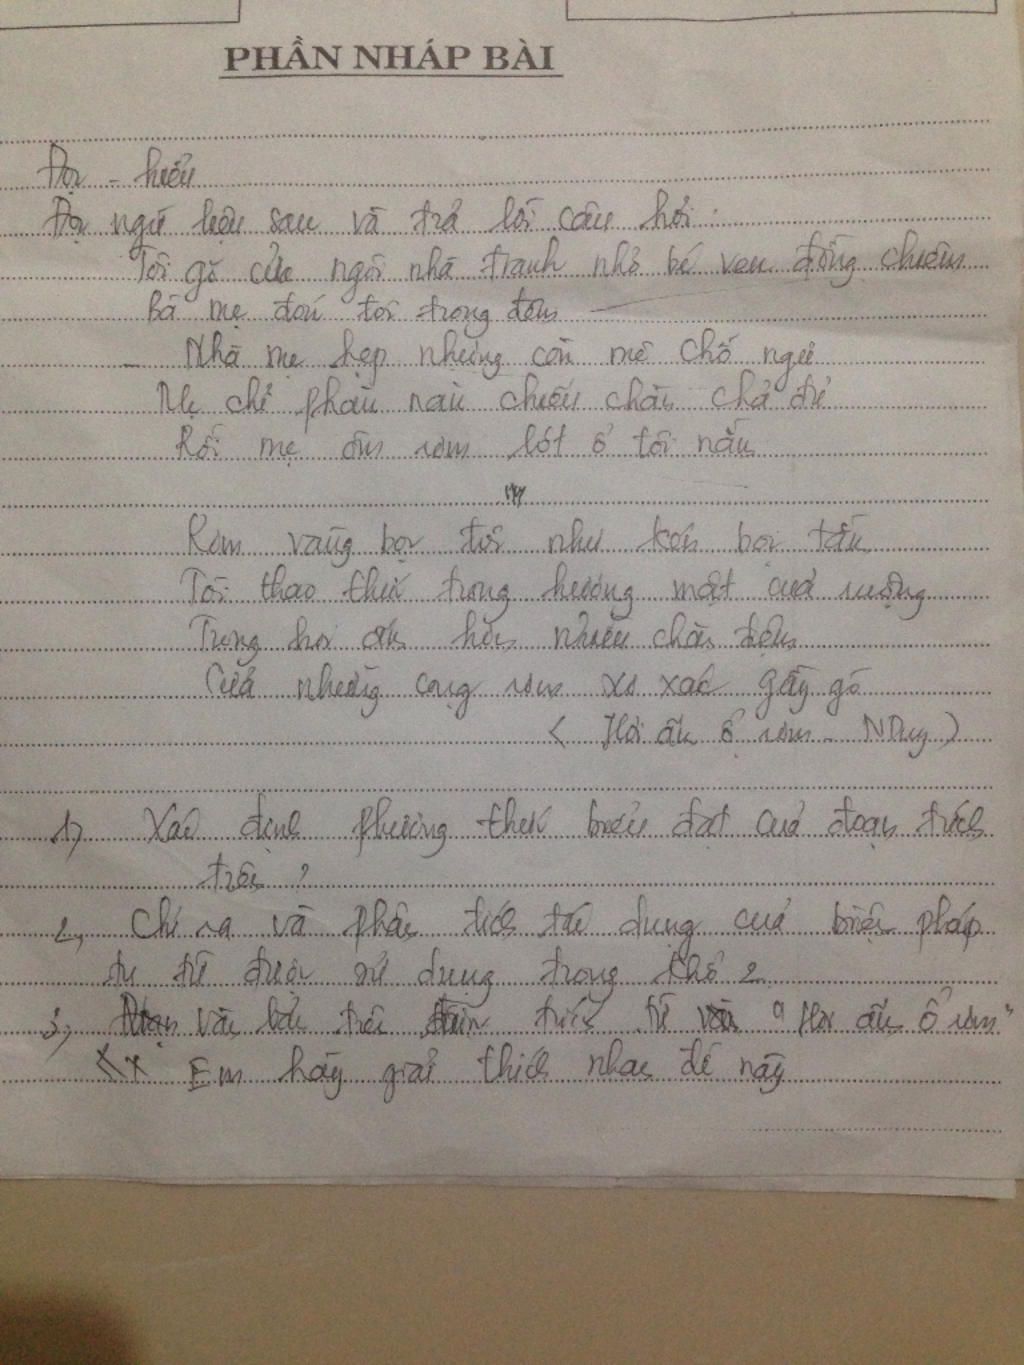 PHẦN NHÁP BÀI
Đọc - hiểu
Đọc ngữ liệu sau và trả lời câu hỏi:
Tôi gõ cửa ngôi nhà tranh nhỏ bé ven đồng chiêm
Bà mẹ đón tôi trong đêm
- Nhà mẹ hẹp nhưng còn mê chỗ ngủ
Mẹ chỉ phàn nàn chiếu chăn chả đủ
Rồi mẹ ôm rơm lót ổ tôi nằm
Rơm vàng bọc tôi như kén bọc tằm
Tôi thao thức trong hương mật của ruộng
Trong hơi ấm hơn nhiều chăn đệm
Của những cọng rơm xơ xác gầy gò
( Hơi ấm ổ rơm - NDuy )
1, Xác định phương thức biểu đạt của đoạn trích
trên ?
2, Chỉ ra và phân tích tác dụng của biện pháp
tu từ được sử dụng trong khổ 2
3, Văn bản trên trích từ "Hơi ấm ổ rơm"
Em hãy giải thích nhan đề này